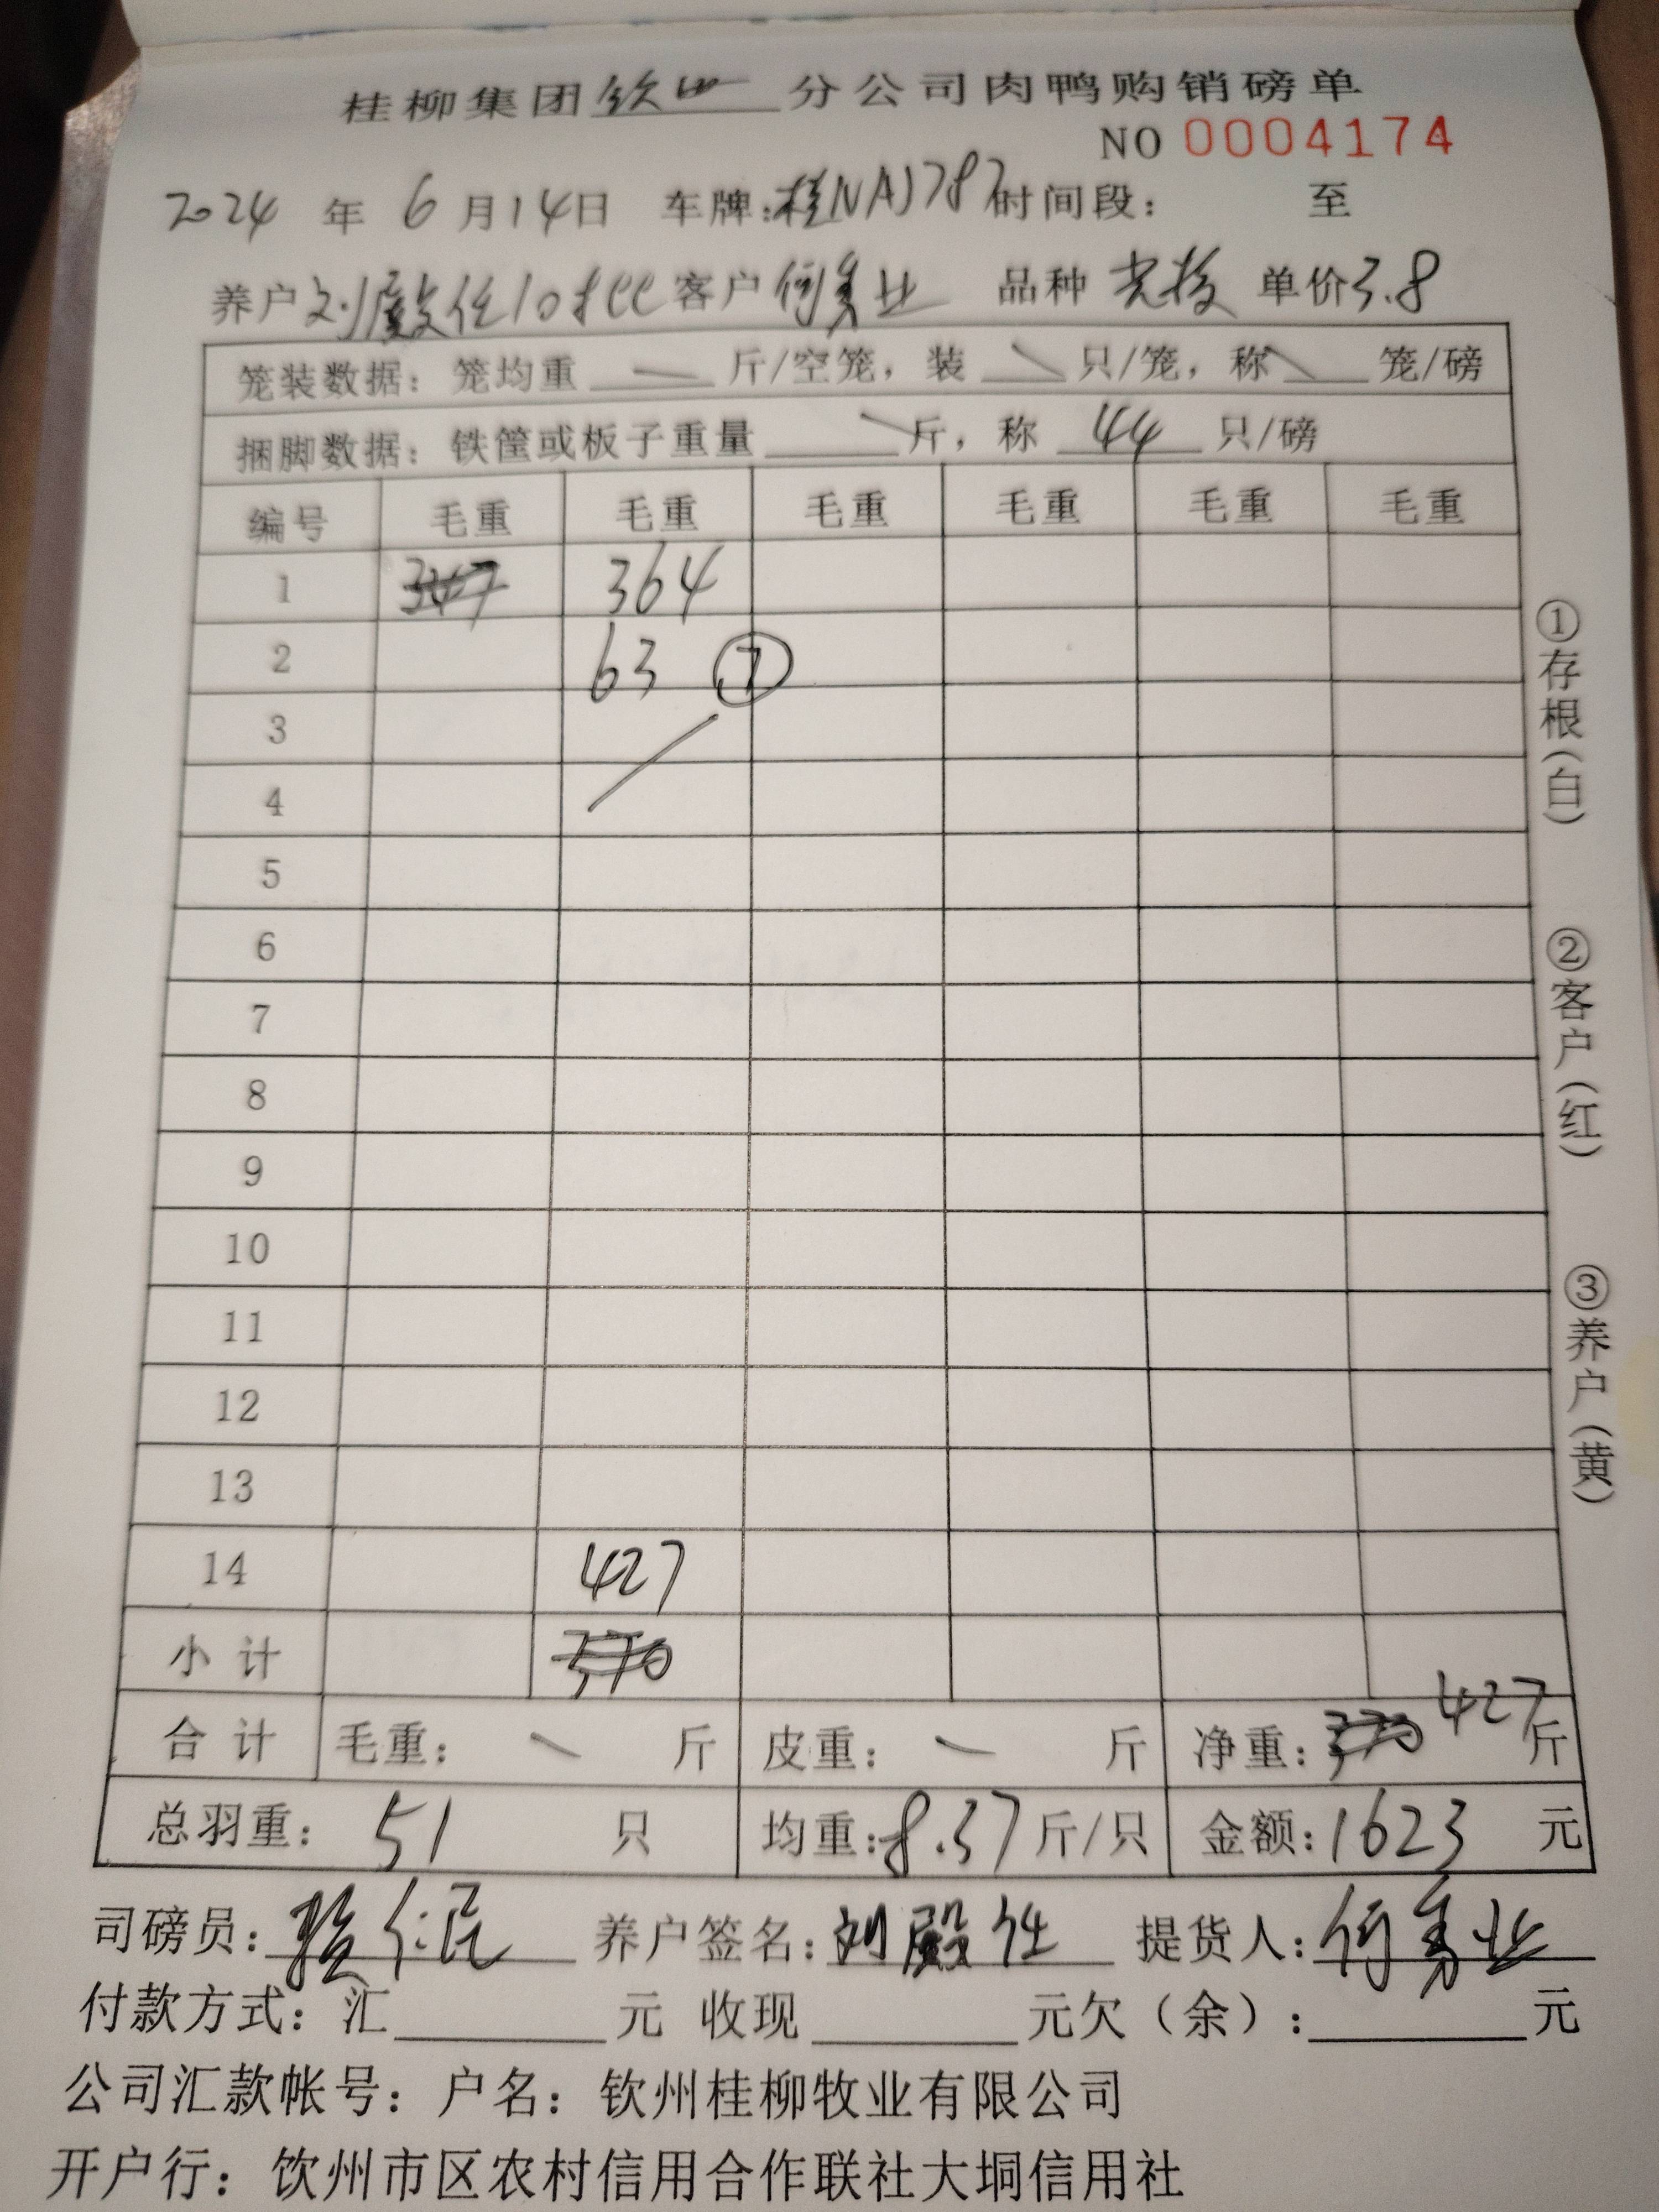 桂柳集团钦州分公司肉鸭购销磅单
NO 0004174
2024 年 6 月 14 日 车牌:桂NAJ787 时间段: 至
养户 刘殿任10批 客户 何美业 品种 单价3.8
笼装数据: 笼均重 — 斤/空笼, 装 \ 只/笼, 称 \ 笼/磅
捆脚数据: 铁筐或板子重量 \ 斤, 称 44 只/磅
编号 毛重 毛重 毛重 毛重 毛重 毛重
1 364
2 63 ⑦
3
4
5
6
7
8
9
10
11
12
13
14 427
小计
合计 毛重: — 斤 皮重: — 斤 净重: 427 斤
总羽重: 51 只 均重:8.37 斤/只 金额:1623 元
司磅员: 仁民 养户签名:刘殿任 提货人:何美业
付款方式: 汇 元 收现 元欠(余): 元
公司汇款帐号: 户名: 钦州桂柳牧业有限公司
开户行: 饮州市区农村信用合作联社大垌信用社
①存根(白)
②客户(红)
③养户(黄)